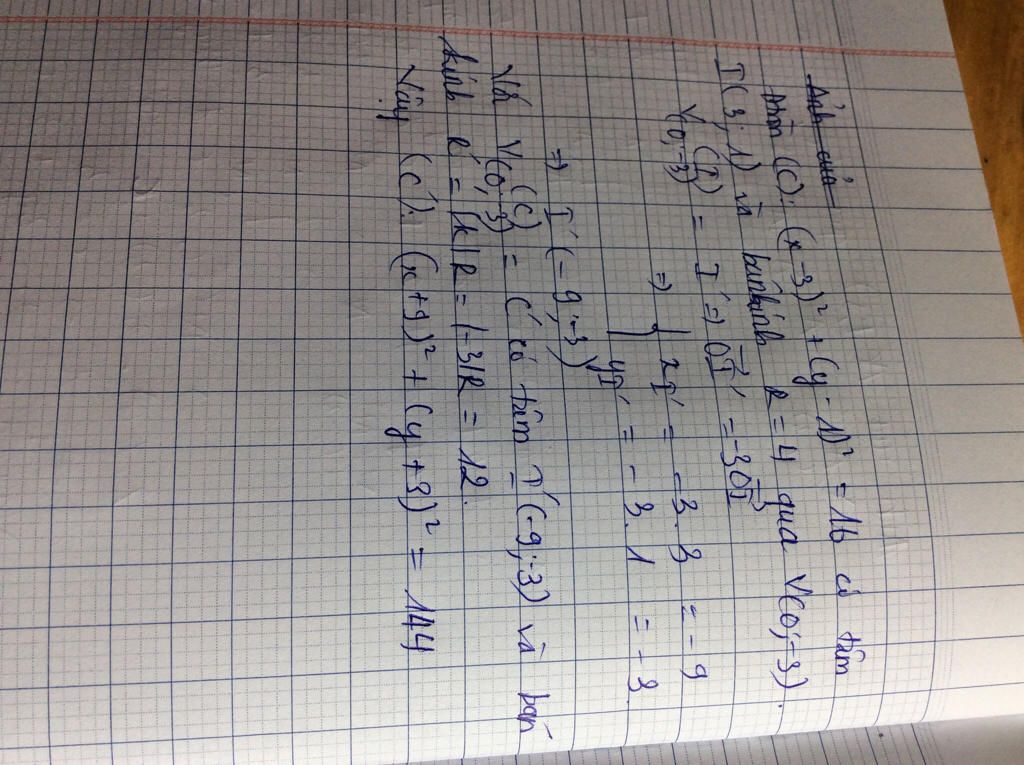 Ảnh của
(C): (x-3)² + (y-1)² = 16 có tâm
I(3; 1) và bán kính R = 4 qua V(O;-3).
V(O;-3) (I) = I' ⇒ OI' = -3OI
⇒ { xI' = -3.3 = -9
yI' = -3.1 = -3.
⇒ I'(-9;-3)
Và V(O;-3) (C) = C' có tâm I'(-9;-3) và bán
kính R' = |k|R = |-3|R = 12.
Vậy (C'): (x+9)² + (y+3)² = 144